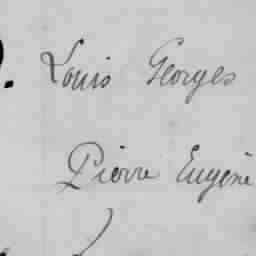 Louis Georges
Pierre Eugène